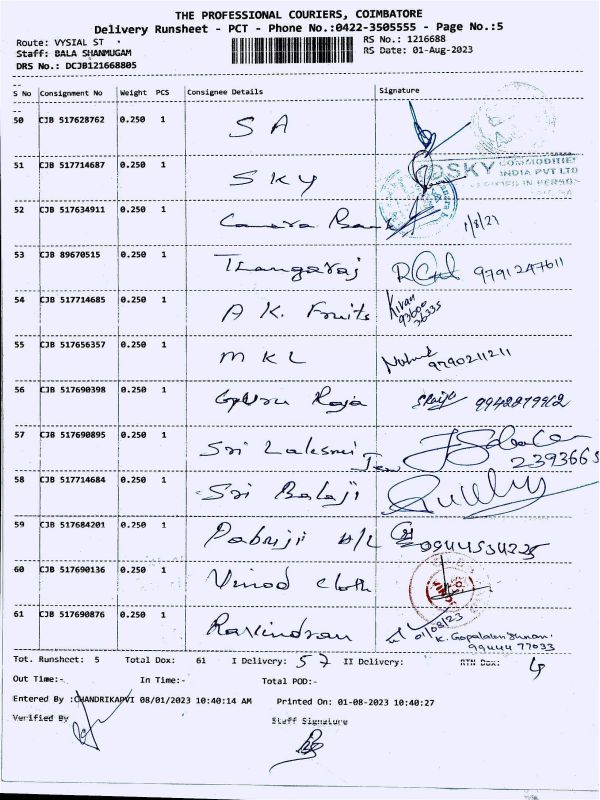 THE PROFESSIONAL COURIERS, COIMBATORE
Delivery Runsheet - PCT - Phone No.:0422-3505555 - Page No.:5
Route: VYSIAL ST
RS No.: 1216688
Staff: BALA SHANMUGAM
RS Date: 01-Aug-2023
DRS No.: DCJB121668805
S No Consignment No Weight PCS Consignee Details Signature
50 CJB 517628762 0.250 1 S A
51 CJB 517714687 0.250 1 SKY
SKY COMMODITIES
INDIA PVT LTD
52 CJB 517634911 0.250 1 Canara Bank 1/8/23
53 CJB 89670515 0.250 1 Thangaraj 9791247611
54 CJB 517714685 0.250 1 A K. Fruits Kiran
93600
36335
55 CJB 517656357 0.250 1 MKL 9790211211
56 CJB 517690398 0.250 1 Guru Raja 9942879962
57 CJB 517690895 0.250 1 Sri Laksmi Jew 2393665
58 CJB 517714684 0.250 1 Sri Balaji
59 CJB 517684201 0.250 1 H/L 09944534225
60 CJB 517690136 0.250 1 Vinod Cloth
61 CJB 517690876 0.250 1 Ravindran 01/08/23
99444 77033
Tot. Runsheet: 5 Total Dox: 61 I Delivery: 57 II Delivery: RTN Dox: 4
Out Time:- In Time:- Total POD:-
Entered By :CHANDRIKAPVI 08/01/2023 10:40:14 AM Printed On: 01-08-2023 10:40:27
Verified By Staff Signature